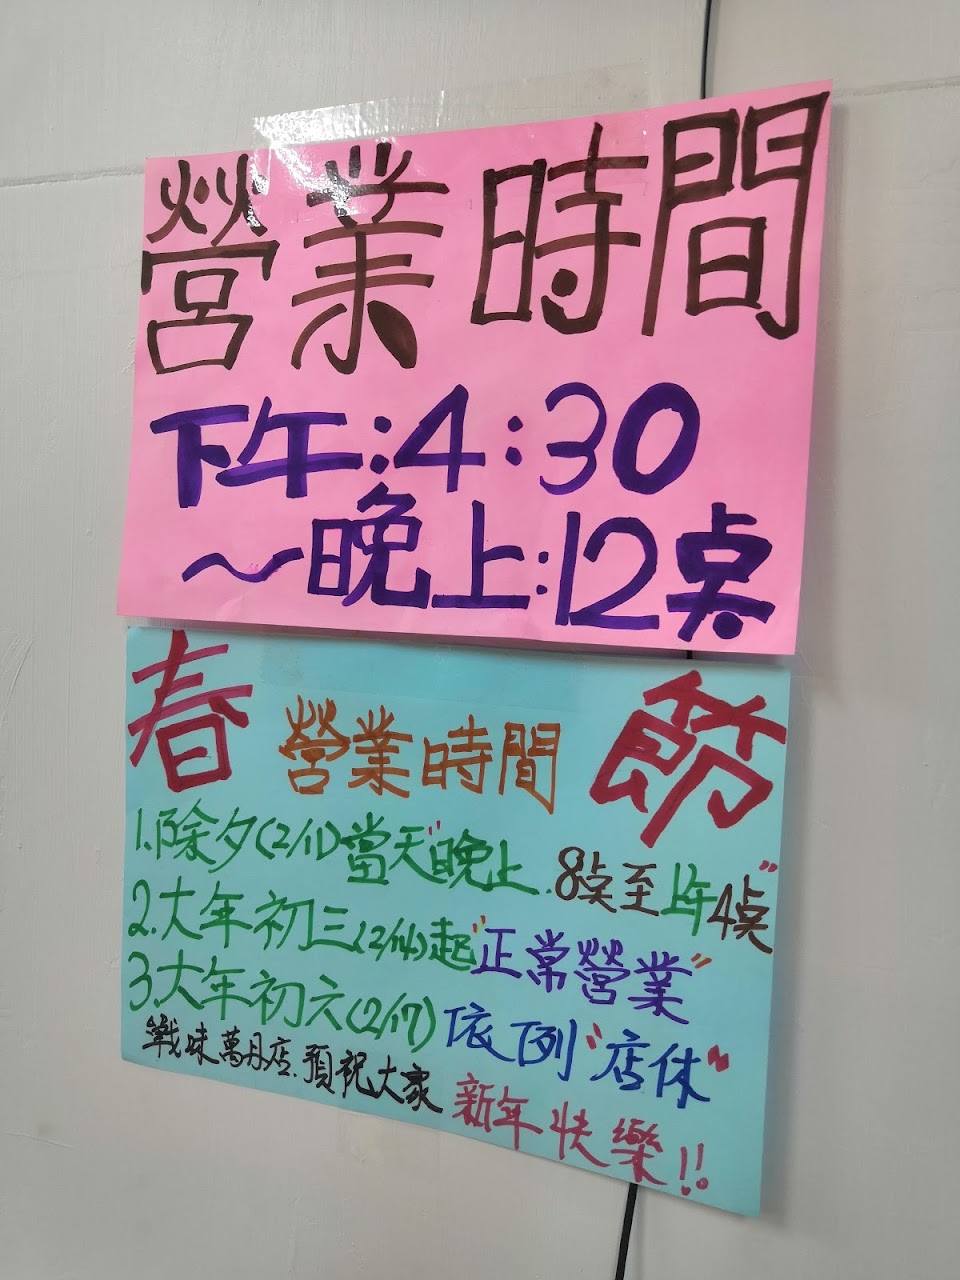 營業時間
下午:4:30
～晚上:12桌
春節
營業時間
1.除夕(2/11)當天"晚上8点至上午4点"
2.大年初三(2/14)起"正常營業"
3.大年初六(2/17)依例"店休"
戰味萬丹店.預祝大家新年快樂!!